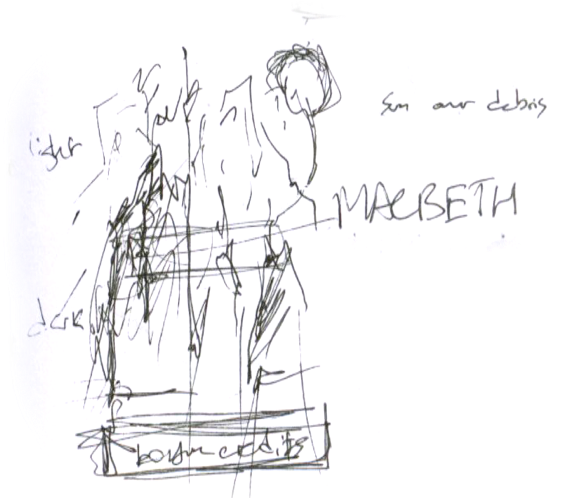 sun over debris
light
MACBETH
dark
bottom credits